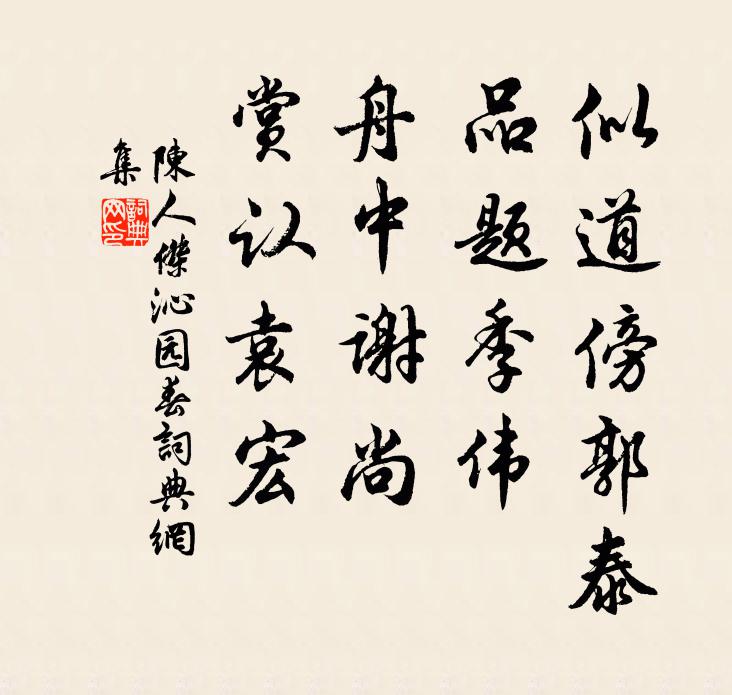 似道傍郭泰
品题季伟
舟中谢尚
赏认袁宏
陳人傑沁园春詞典網
集
詞典
网印